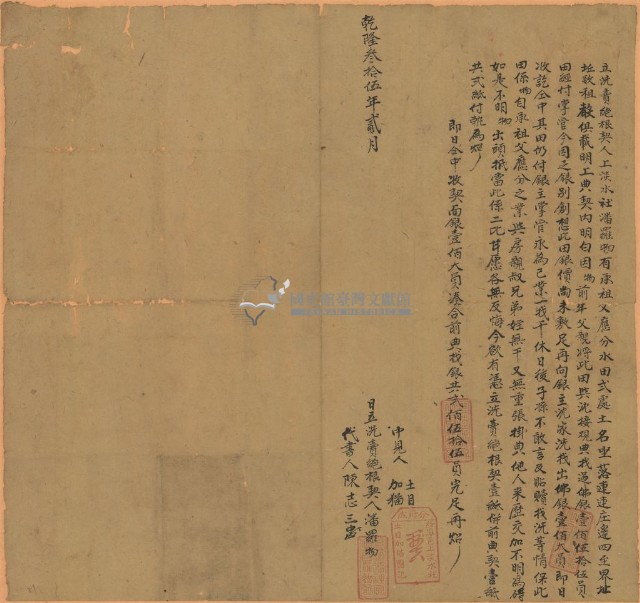 立洗賣絕根契人上淡水社潘羅物有承祖父應分水田弍處土名坐落連連庄邊四至界址
址收租穀俱載明上典契內明白因物前年父親將此田與沈接現典找過佛銀壹佰伍拾伍員
田經付掌管今因乏銀別創想此田銀價尚未敷足再向銀主沈家洗找出佛銀壹佰大員即日
收訖仝中其田仍付銀主掌管永為己業一找千休日後子孫不敢言及貼贖找洗等情保此
田係物自承祖父應分之業與房親叔兄弟姪無干又無重張掛典他人來歷交加不明為碍
如是不明物出頭抵當此係二比甘愿各無反悔今欲有憑立洗賣絕根契壹紙併前典契壹紙
共弍紙付執為炤
即日仝中收契面銀壹佰大員湊合前典找銀共弍佰伍拾伍員完足再炤
乾隆叁拾伍年貳月
日立洗賣絕根契人潘羅物
中見人
土目
加猫
代書人陳志三
國史館臺灣文獻館